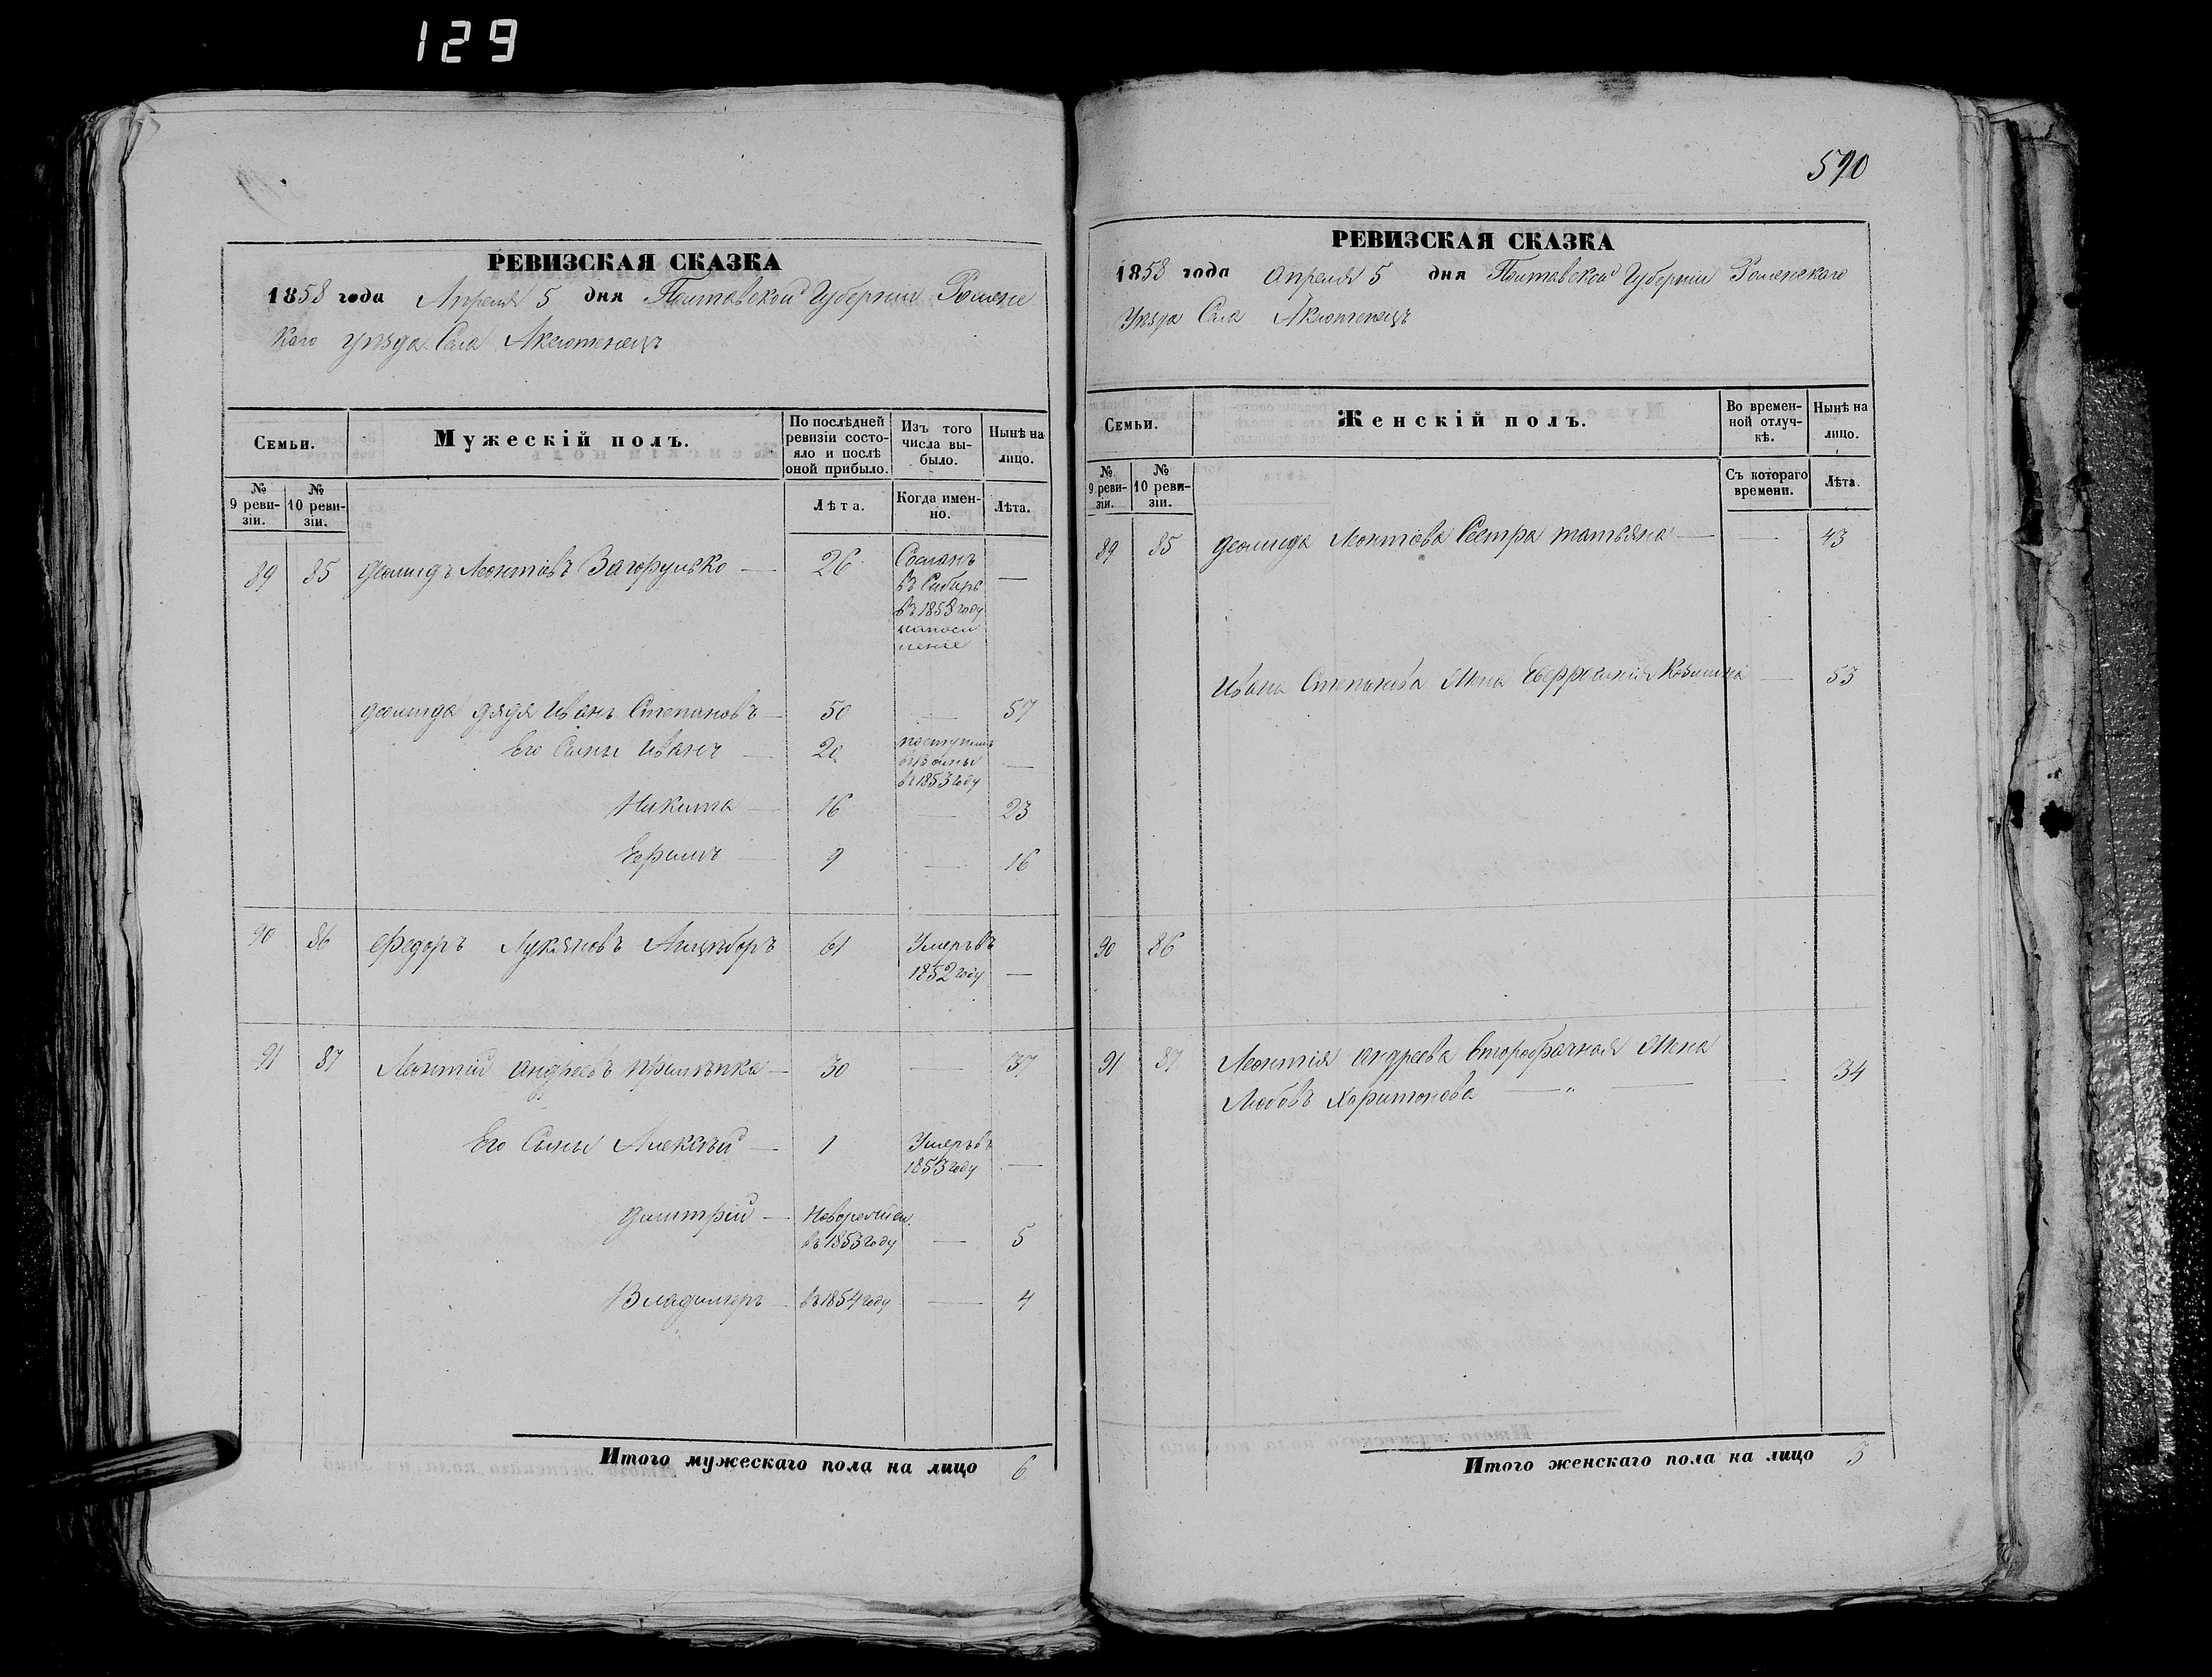 129
РЕВИЗСКАЯ СКАЗКА
1858 года Апреля 5 дня Полтавской Губернии Роменс
кого уѣзда Села Аксютенецъ
Семьи.
Мужескій полъ.
По послѣдней ревизіи состояло и послѣ оной прибыло.
Изъ того числа выбыло.
Нынѣ на лицо.
№ 9 ревизіи.
№ 10 ревизіи.
Лѣта.
Когда именно.
Лѣта.
89 85 Леонтовъ Загорулько — 26 Сосланъ въ Сибирь въ 1858 году —
дядя Иванъ Степановъ — 50 — 57
Его Сыны Иванъ — 20 поступилъ въ 1853 году —
Никита — 16 — 23
Ефимъ — 9 — 16
90 86 Федоръ Лукяновъ 61 Умеръ въ 1852 году —
91 87 Леонтий андреевъ — 30 — 37
Его Сыны Алексѣй — 1 Умеръ въ 1853 году —
Дмитрий — Новорожден. въ 1853 году — 5
Владимеръ — въ 1854 году — 4
Итого мужескаго пола на лицо 6
590
РЕВИЗСКАЯ СКАЗКА
1858 года апреля 5 дня Полтавской Губернии Роменского
Уѣзда Села Аксютенецъ
Семьи.
Женскій полъ.
Во временной отлучкѣ.
Нынѣ на лицо.
№ 9 ревизіи.
№ 10 ревизіи.
Съ котораго времени.
Лѣта.
89 85 Леонтова Сестра татьяна — — 43
Ивана Степанова Жена Евфросиния — 53
90 86
91 87 Леонтия андреева второбрачная Жена
Любовъ Харитонова — " — — 34
Итого женскаго пола на лицо 3